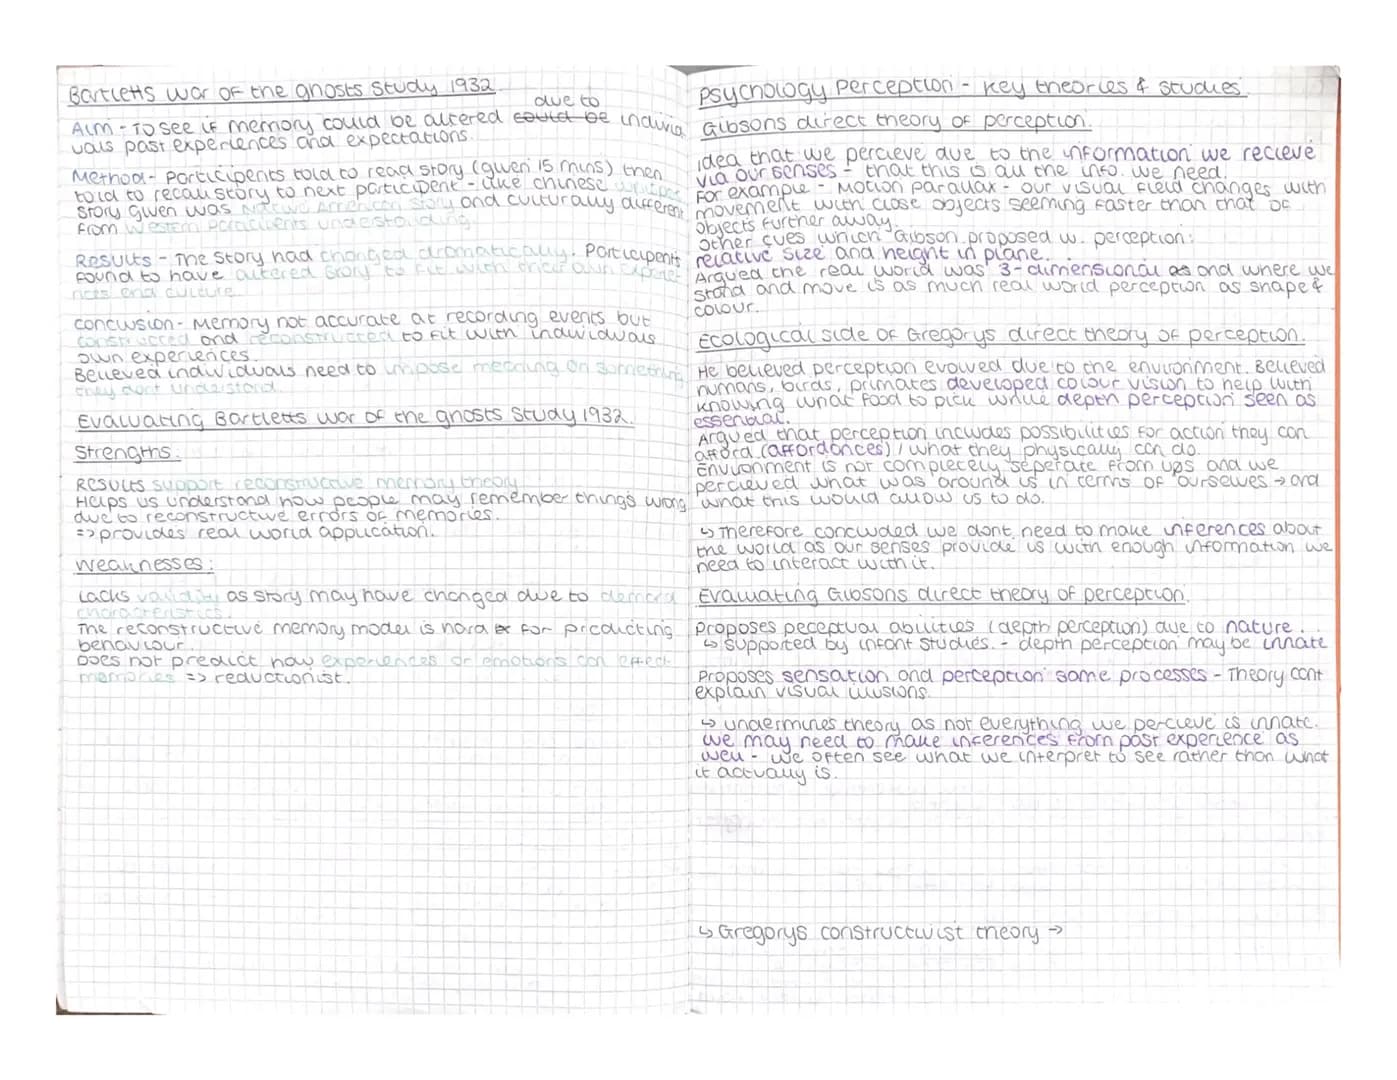 Bartletts war of the ghosts study 1932
due to
Aim - To see if memory could be altered could be individ
uals past experiences and expectations.
Method - Participents told to read story (given 15 mins) then
told to recall story to next participent - like chinese whisper
Story given was Native American story and culturally different
from Western Participents understanding.
Results - The story had changed dramatically. Participents
found to have altered story to fit with their own experie
nces and culture.
Conclusion - Memory not accurate at recording events but
constructed and reconstructed to fit with individuals
own experiences.
Believed individuals need to impose meaning on something
they dont understand.
Evaluating Bartletts war of the ghosts study 1932.
Strengths:
Results support reconstructive memory theory
Helps us understand how people may remember things wrong
due to reconstructive errors of memories.
=> provides real world application.
Weaknesses:
Lacks validity as story may have changed due to demand
characteristics.
The reconstructive memory model is hard for predicting
behaviour.
Does not predict how experiences or emotions can effect
memories => reductionist.
Psychology Perception - key theories & studies.
Gibsons direct theory of perception.
idea that we percieve due to the information we recieve
via our senses - that this is all the info. we need.
For example - Motion parallax - our visual field changes with
movement with close objects seeming faster than that of
objects further away.
Other cues which Gibson proposed w. perception:
relative size and height in plane.
Argued the real world was 3-dimensional as and where we
stand and move is as much real world perception as shape &
colour.
Ecological side of Gregorys direct theory of perception.
He believed perception evolved due to the environment. Believed
humans, birds, primates developed colour vision to help with
knowing what food to pick while depth perception seen as
essential.
Argued that perception includes possibilities for action they can
afford (affordances) / what they physically can do.
Environment is not completely seperate from ups and we
percieved what was around us in terms of ourselves → and
what this would allow us to do.
↳ Therefore concluded we dont need to make inferences about
the world as our senses provide us with enough information we
need to interact with it.
Evaluating Gibsons direct theory of perception.
Proposes peceptual abilities (depth perception) due to nature.
↳ supported by infant studies. - depth perception may be innate
Proposes sensation and perception same processes - Theory cant
explain visual illusions.
↳ undermines theory as not everything we percieve is innate.
We may need to make inferences from past experience as
well - we often see what we interpret to see rather than what
it actually is.
↳ Gregorys constructivist theory →